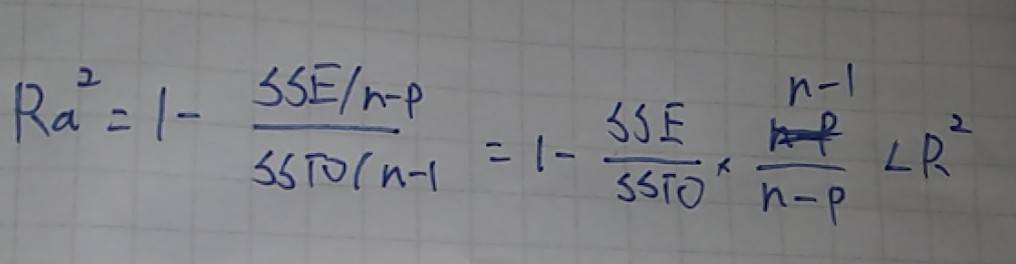 Ra² = 1 - (SSE/n-p)/(SSTO/n-1) = 1 - SSE/SSTO × (n-1)/(n-p) < R²